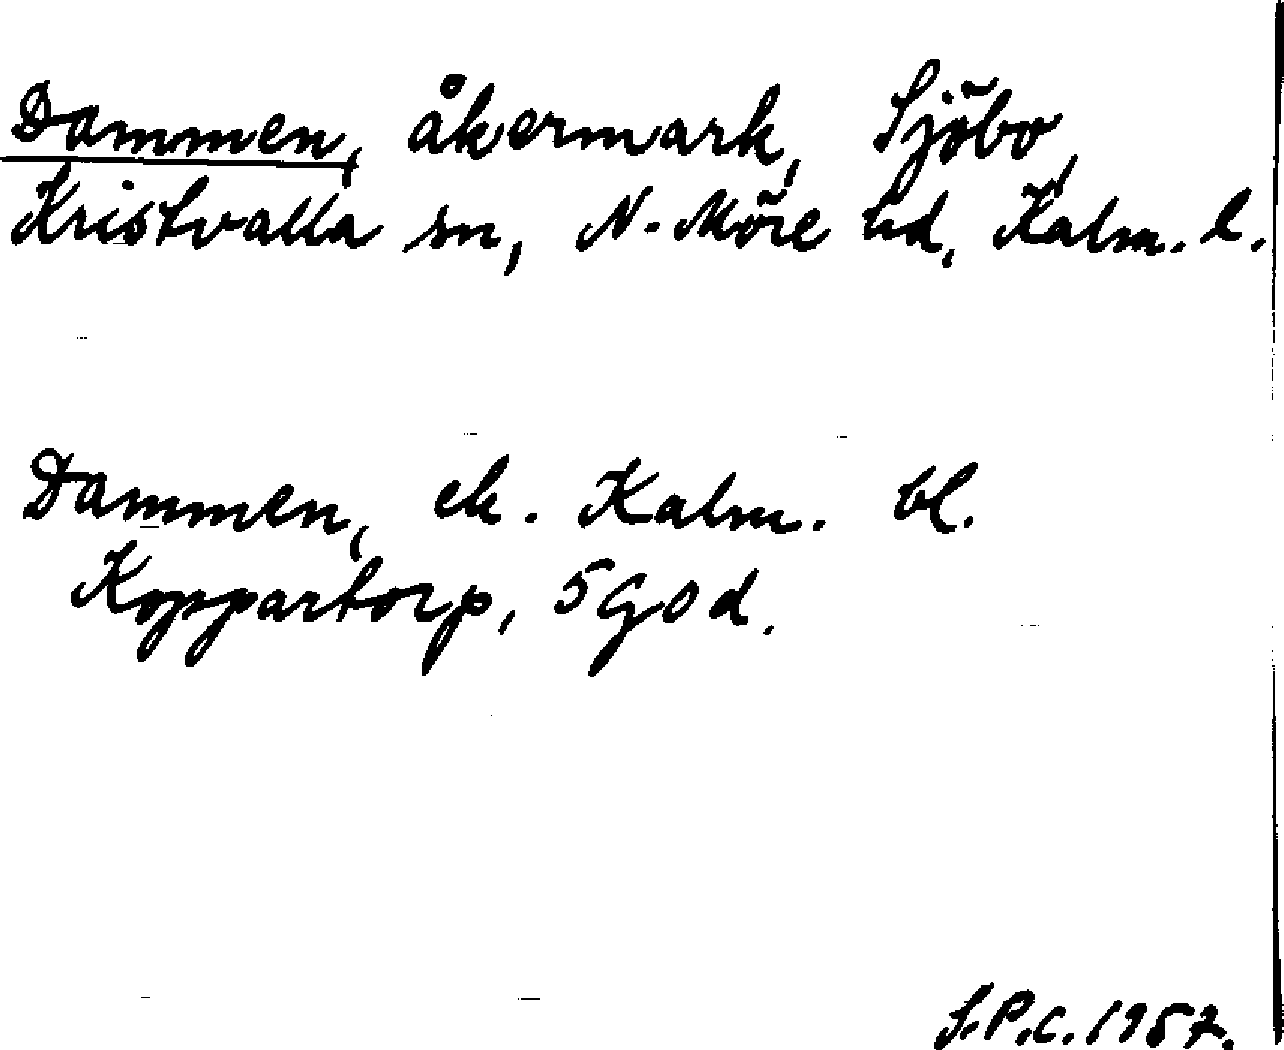 Dammen, åkermark, Sjöbo,
Kristvalla sn, N. Möre hd, Kalm. l.
Dammen, ek. Kalm. bl.
Koppartorp, 5 G o d.
S.P.C. 1957.